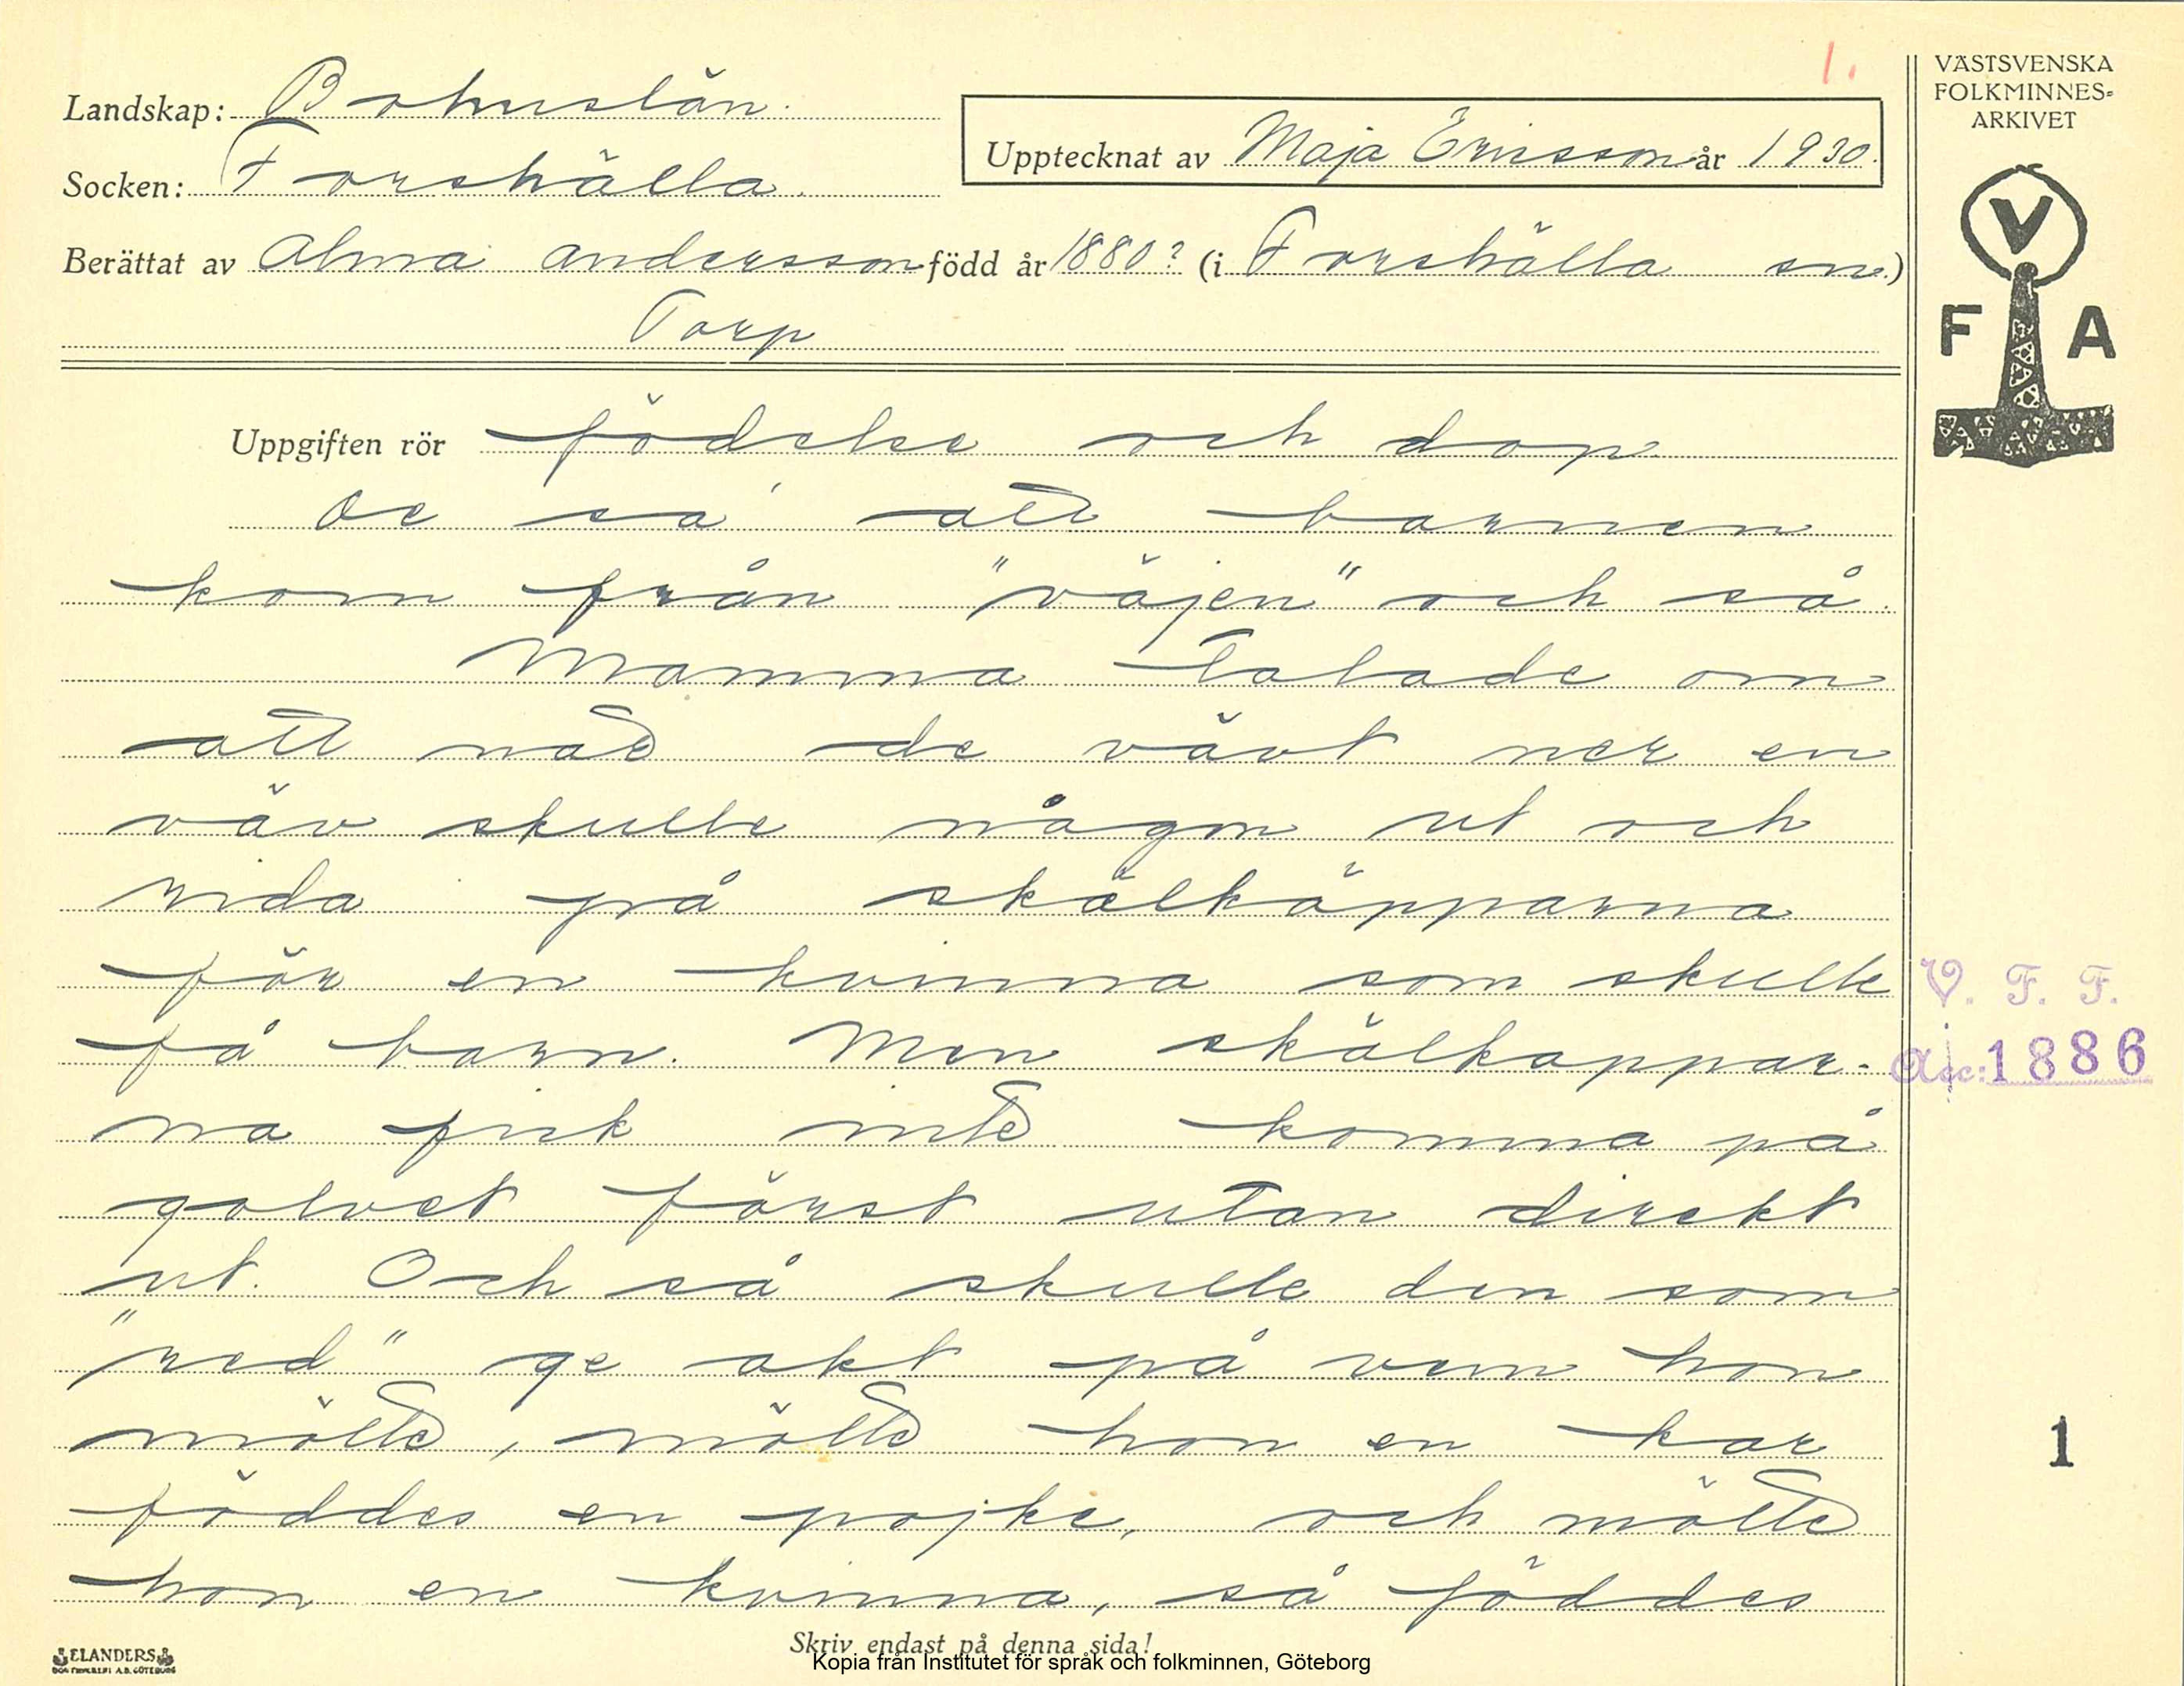 1.
VÄSTSVENSKA
FOLKMINNES-
ARKIVET
Landskap: Bohuslän.
Upptecknat av Maja Ericsson år 1930.
Socken: Forshälla.
Berättat av Alma Andersson född år 1880? (i Forshälla sn.)
Torp
V
F A
Uppgiften rör födelse och dop
De sa' att barnen
kom från "väjen" och så.
Mamma talade om
att när de vävt ner en
väv skulle någon ut och
rida på skälkäpparna
för en kvinna som skulle
få barn. Men skälkäppar-
na fick inte komma på
golvet först utan direkt
ut. Och så skulle den som
"red" ge akt på vem hon
mötte, mötte hon en kar
föddes en pojke, och mötte
hon en kvinna, så föddes
V. F. F.
Acc: 1886
1
Skriv endast på denna sida!
ELANDERS
BOKTRYCKERI A.B. GÖTEBORG
Kopia från Institutet för språk och folkminnen, Göteborg